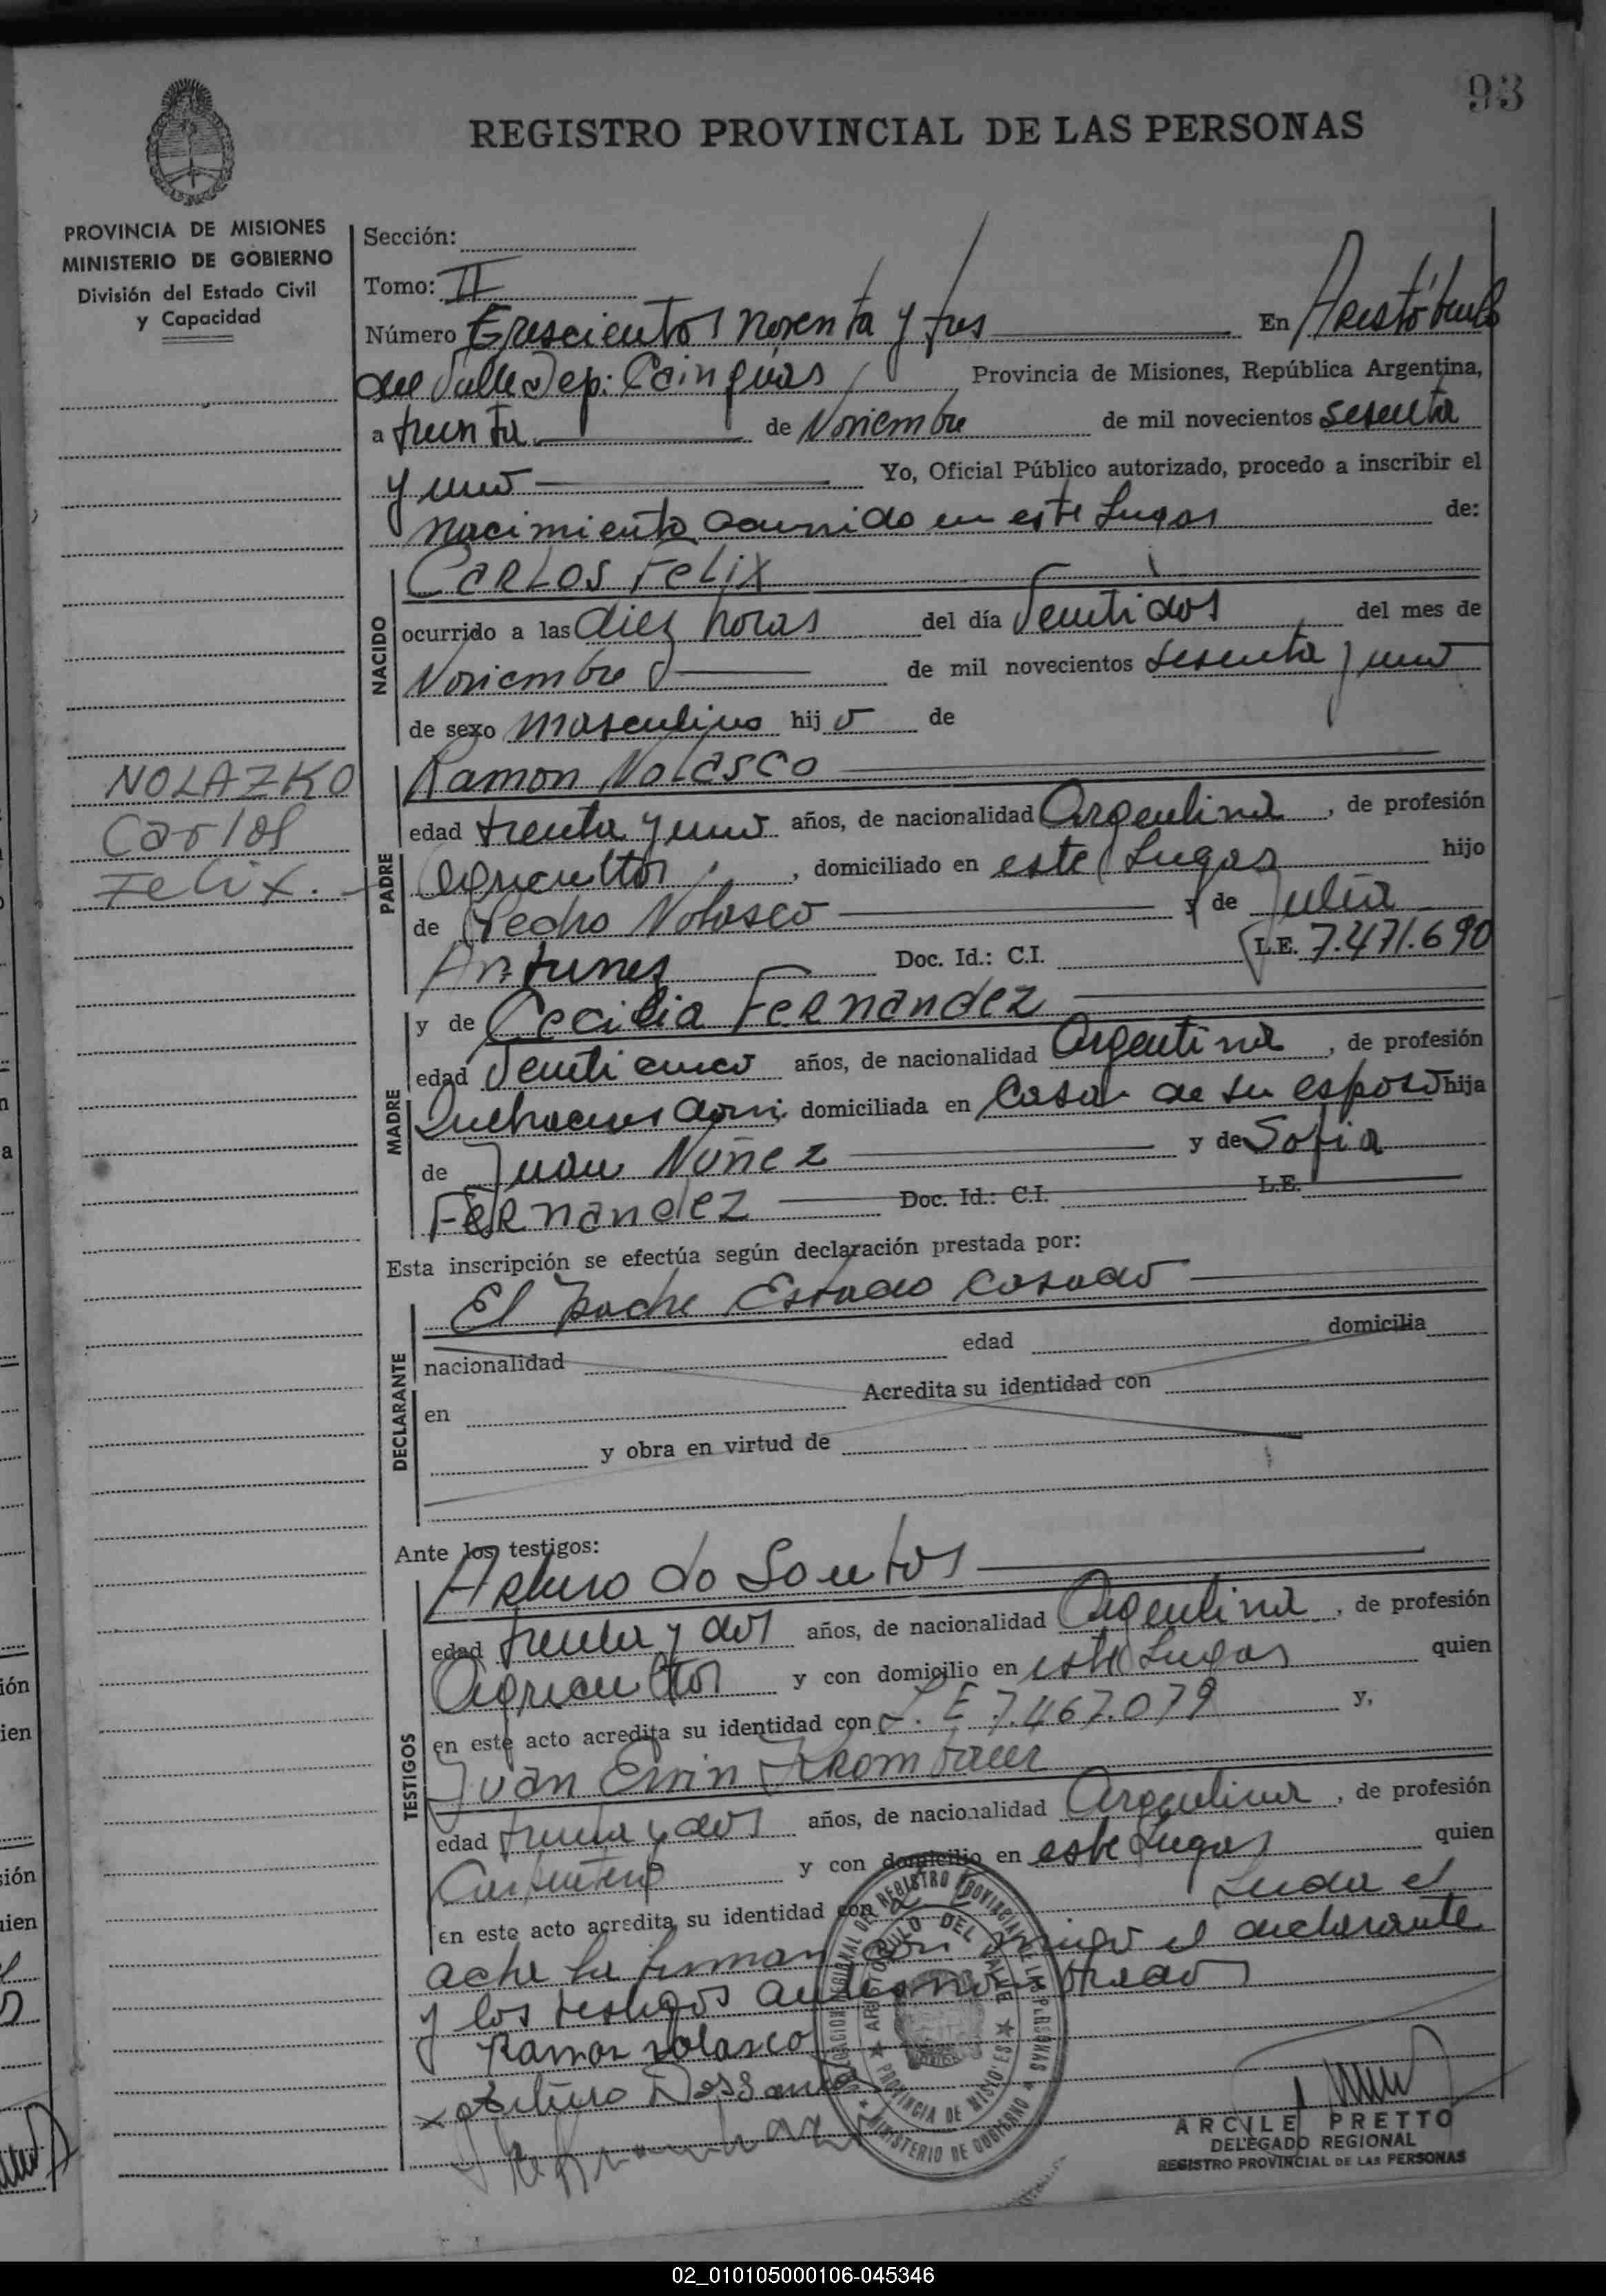 93
REGISTRO PROVINCIAL DE LAS PERSONAS
PROVINCIA DE MISIONES
MINISTERIO DE GOBIERNO
División del Estado Civil
y Capacidad
Sección:
Tomo: II
Número Trescientos noventa y tres En Aristóbulo
del Valle Dep: Cainguas Provincia de Misiones, República Argentina,
a treinta de Noviembre de mil novecientos sesenta
y uno Yo, Oficial Público autorizado, procedo a inscribir el
nacimiento ocurrido en este Lugar de:
NACIDO
CARLOS FELIX
ocurrido a las diez horas del día Veintidos del mes de
Noviembre de mil novecientos sesenta y uno
de sexo masculino hijo de
NOLAZKO
Carlos
Felix.
PADRE
Ramon Nolasco
edad treinta y uno años, de nacionalidad Argentina, de profesión
Agricultor, domiciliado en este Lugar hijo
de Pedro Nolasco y de Julia
Antunez Doc. Id.: C.I. L.E. 7.471.690
MADRE
y de Cecilia Fernandez
edad Veinticinco años, de nacionalidad Argentina, de profesión
Quehaceres dom: domiciliada en Casa de su esposo hija
de Juan Núñez y de Sofia
Fernandez Doc. Id.: C.I. L.E.
Esta inscripción se efectúa según declaración prestada por:
DECLARANTE
El Padre Estado Casado
nacionalidad edad domicilia
en Acredita su identidad con
y obra en virtud de
Ante los testigos:
TESTIGOS
Arturo do Santos
edad treinta y dos años, de nacionalidad Argentina, de profesión
Agricultor y con domicilio en este Lugar quien
en este acto acredita su identidad con L. E 7.467.079 y,
Juan Ervin Krombauer
edad treinta y dos años, de nacionalidad Argentina, de profesión
Carpintero y con domicilio en este Lugar quien
en este acto acredita su identidad con Leida el
acta la firman con migo el declarante
y los testigos antes nombrados
Ramon nolasco
x Arturo Dos Santos
DELEGACION REGIONAL DEL REGISTRO PROVINCIAL DE LAS PERSONAS
ARISTOBULO DEL VALLE
PROVINCIA DE MISIONES
MINISTERIO DE GOBIERNO
ARCILE PRETTO
DELEGADO REGIONAL
REGISTRO PROVINCIAL DE LAS PERSONAS
02_010105000106-045346